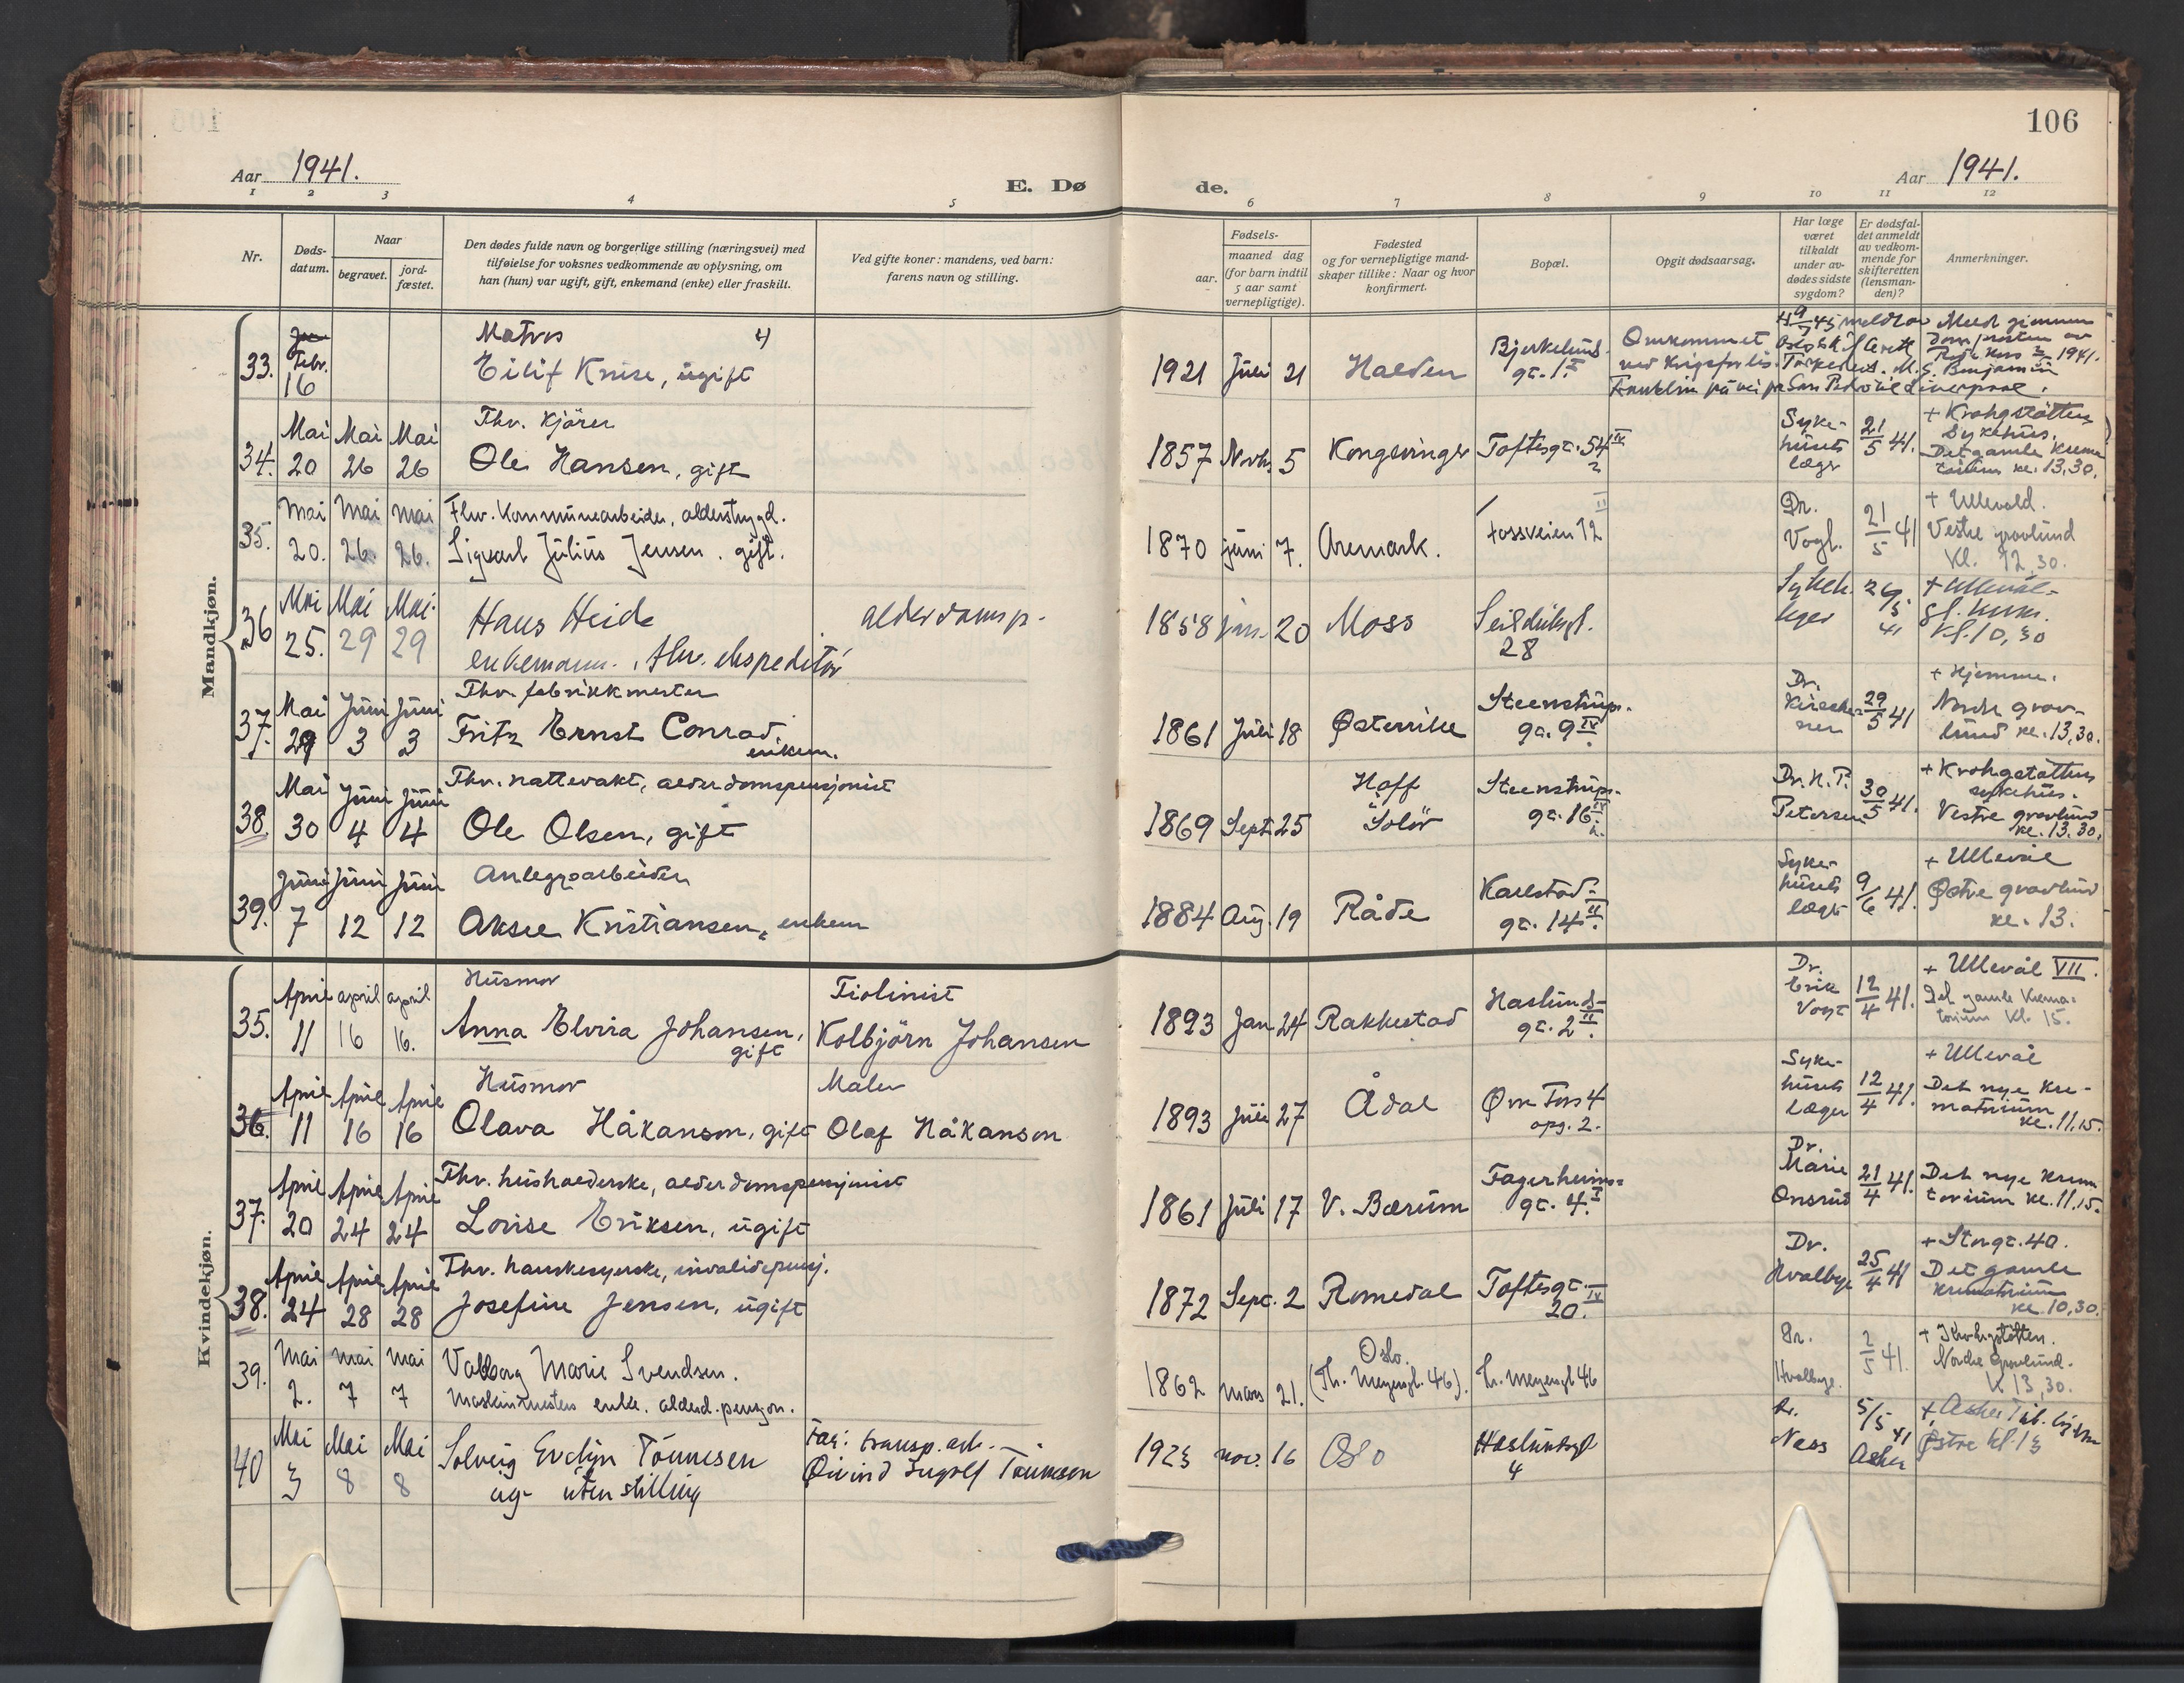 106
Aar 1941.
E. Dø
de.
Aar 1941.
1 2 3 4 5 6 7 8 9 10 11 12
Nr.
Døds-
datum.
Naar
begravet.
jord-
fæstet.
Den dødes fulde navn og borgerlige stilling (næringsvei) med
tilføielse for voksnes vedkommende av oplysning, om
han (hun) var ugift, gift, enkemand (enke) eller fraskilt.
Ved gifte koner: mandens, ved barn:
farens navn og stilling.
Fødsels-
aar.
maaned dag
(for barn indtil
5 aar samt
vernepligtige).
Fødested
og for vernepligtige mand-
skaper tillike: Naar og hvor
konfirmert.
Bopæl.
Opgit dødsaarsag.
Har læge
været
tilkaldt
under av-
dødes sidste
sygdom?
Er dødsfal-
det anmeldt
av vedkom-
mende for
skifteretten
(lensman-
den)?
Anmerkninger.
Mandkjøn.
33. Febr. 16
Matros
Eilif Kruse, ugift
1921 Juli 21 Halden
Bjerkelunds-
gt. 1 II
Omkommet
ved krigsforlis.
M.S. Benjamin
Franklin på vei fra San Pedro til Liverpool.
34. Mai 20 Mai 26 Mai 26
Fhv. kjører
Ole Hansen, gift
1857 Novbr. 5 Kongsvinger Toftesgt. 54 IV
Syke-
husets
læge
21/5 41.
+ Krohgstøttens
sykehus.
Det gamle krema-
torium kl. 13,30.
35. Mai 20. Mai 26. Mai 26.
Fhv. kommunearbeider, alderstrygd.
Sigvart Julius Jensen. gift.
1870 juni 7. Aremark. Fossveien 12 II
Dr.
Vogt.
21/5 41
+ Ullevål.
Vestre gravlund
kl. 12,30.
36 Mai 25. Mai 29 Mai 29
Hans Heide
enkemann. fhv. ekspeditør
alderdomsp.
1858 jan. 20 Moss
Seilduksgt.
28
Sykeh.
leger
26/5 41
+ Ullevål-
gl. krem.
kl. 10,30
37. Mai 29 Juni 3 Juni 3
Fhv. fabrikkmester
Fritz Ernst Conrad.
enkem.
1861 Juli 18 Østerrike
Steenstrups-
gt. 9 IV
Dr.
Kirsch-
ner
29/5 41
+ Hjemme.
Nordre grav-
lund kl. 13,30.
38. Mai 30 Juni 4 Juni 4
Fhv. nattevakt, alderdomspensjonist
Ole Olsen, gift
1869 Sept. 25
Hoff
Solør
Steenstrups-
gt. 16 IV
Dr. H. P.
Petersen
30/5 41.
+ Krohgstøttens
sykehus.
Vestre gravlund
kl. 13.30.
39. Juni 7 Juni 12 Juni 12
Anleggsarbeider
Aksel Kristiansen, enkem
1884 Aug. 19 Råde
Karlstad-
gt. 14 II.
Syke-
husets
læge
9/6 41.
+ Ullevål
Østre gravlund
kl. 13.
Kvindekjøn.
35. April 11 april 16 april 16.
Husmor
Anna Elvira Johansen,
gift
Fiolinist
Kolbjörn Johansen
1893 Jan 24 Rakkestad
Haslunds-
gt. 2 II.
Dr.
Erik
Vogt
12/4 41.
+ Ullevål VII.
Det gamle Krema-
torium kl. 15.
36. April 11 April 16 April 16
Husmor
Olava Håkanson, gift
Maler
Olaf Håkanson
1893 Juli 27 Ådal
Øvre Foss 4
opg. 2.
Syke-
husets
læger
12/4 41.
+ Ullevål
Det nye kre-
matorium
kl. 11.15.
37. April 20 April 24 April 24
Fhv. husholderske, alderdomspensjonist
Lovise Eriksen, ugift
1861 Juli 17 V. Bærum
Fagerheims-
gt. 4. I
Dr.
Marie
Onsrud
21/4 41.
Det nye krema-
torium kl. 11.15.
38. April 24 April 28 April 28
Fhv. hanskesyerske, invalidepensj.
Josefine Jensen, ugift
1872 Sept. 2 Romedal
Toftesgt.
20. IV
Dr.
Hvalbye
25/4 41
+ Storgt. 40.
Det gamle
krematorium
kl 10,30.
39. Mai 2. mai 7 mai 7
Valborg Marie Svendsen.
Maskinmesters enke. alderd. pensjon.
1862 mars 21.
Oslo.
(Th. Meyersgt. 46).
Th. Meyersgt 46
Dr.
Hvalbye.
2/5 41.
+ Krohgstøtten.
Nordre Gravlund.
kl 13,30.
40 Mai 3 Mai 8 Mai 8
Solveig Evelyn Tönnesen
ug- uten stilling
Far: transp. arb.
Öivind Ingolf Tönnesen
1923 nov. 16 Oslo
Haslundsgt
4
Dr.
Ness
5/5 41
Asker
Østre kl. 13